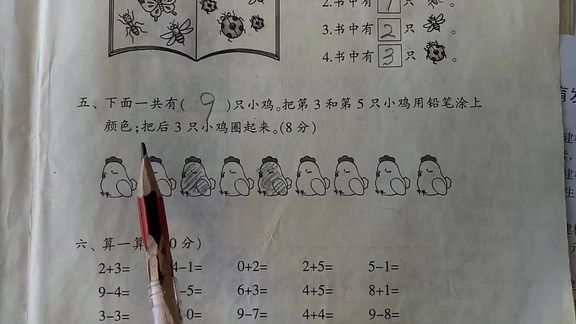 2.书中有 1 只 。
3.书中有 2 只 。
4.书中有 3 只 。
五、下面一共有( 9 )只小鸡。把第3和第5只小鸡用铅笔涂上
颜色;把后3只小鸡圈起来。(8分)
六、算一算 0分)
2+3= 4-1= 0+2= 2+5= 5-1=
9-4= -5= 6+3= 4+5= 8+1=
3-3= 0= 9-7= 4+4= 9-8=